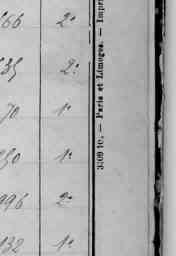 66 2º
35 2º
70 1º
50 1º
996 2º
132 1º
3309 10. — Paris et Limoges. — Impri